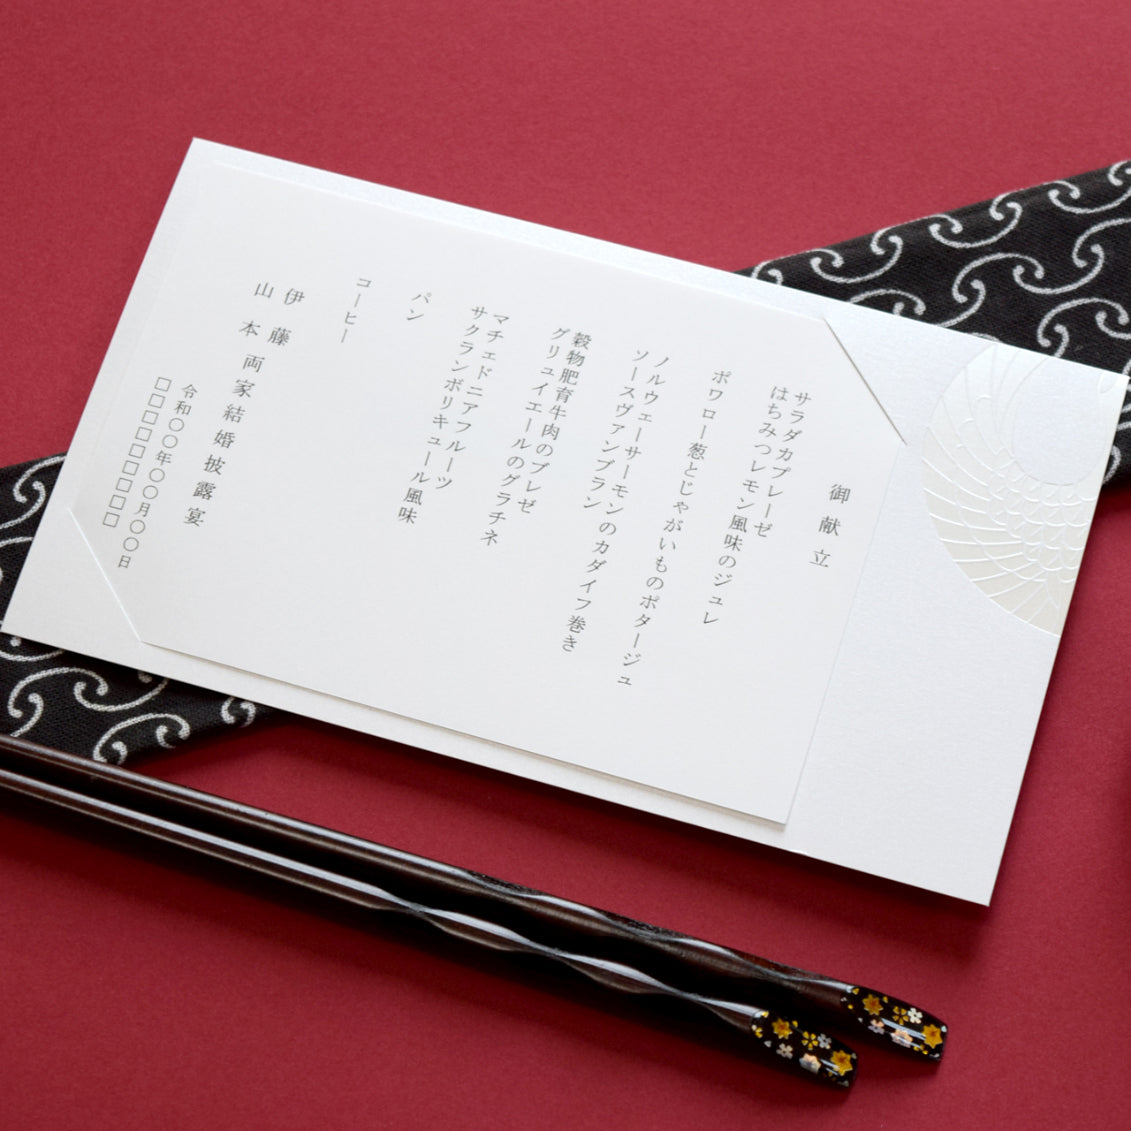 御献立
サラダカプレーゼ
はちみつレモン風味のジュレ
ポワロー葱とじゃがいものポタージュ
ノルウェーサーモンのカダイフ巻き
ソースヴァンブラン
穀物肥育牛肉のブレゼ
グリュイエールのグラチネ
マチェドニアフルーツ
サクランボリキュール風味
パン
コーヒー
伊藤
山本両家結婚披露宴
令和〇〇年〇〇月〇〇日
□□□□□□□□□